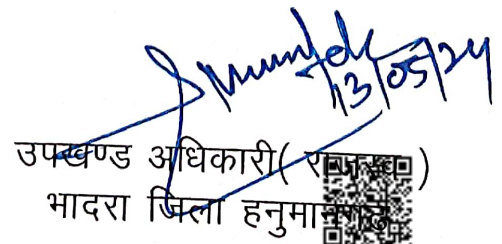 13/05/24
उपखण्ड अधिकारी( राजस्व )
भादरा जिला हनुमानगढ़